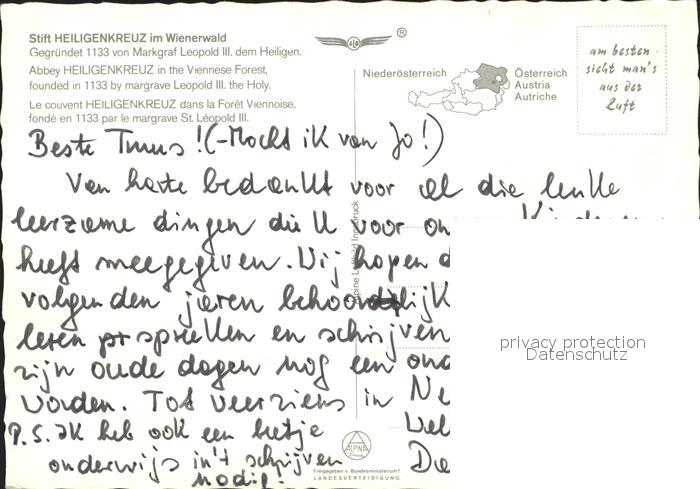 Stift HEILIGENKREUZ im Wienerwald
Gegründet 1133 von Markgraf Leopold III. dem Heiligen.
Abbey HEILIGENKREUZ in the Viennese Forest,
founded in 1133 by margrave Leopold III. the Holy.
Le couvent HEILIGENKREUZ dans la Forêt Viennoise,
fondé en 1133 par le margrave St. Léopold III.
®
Niederösterreich
Österreich
Austria
Autriche
am besten
sieht man's
aus der
Luft
Beste Tinus! (-Mocht ik van Jo!)
Van harte bedankt voor al die leuke
leerzame dingen die U voor
heeft meegegeven. Wij hopen
volgenden jaren behoorlijk
lesen en schrijven
zijn oude dagen nog een
worden. Tot weerziens in
P.S. Ik heb ook een beetje
onderwijs in't schrijven
nodig!
ALPINE
Freigegeben v. Bundesministerium f.
LANDESVERTEIDIGUNG
privacy protection
Datenschutz